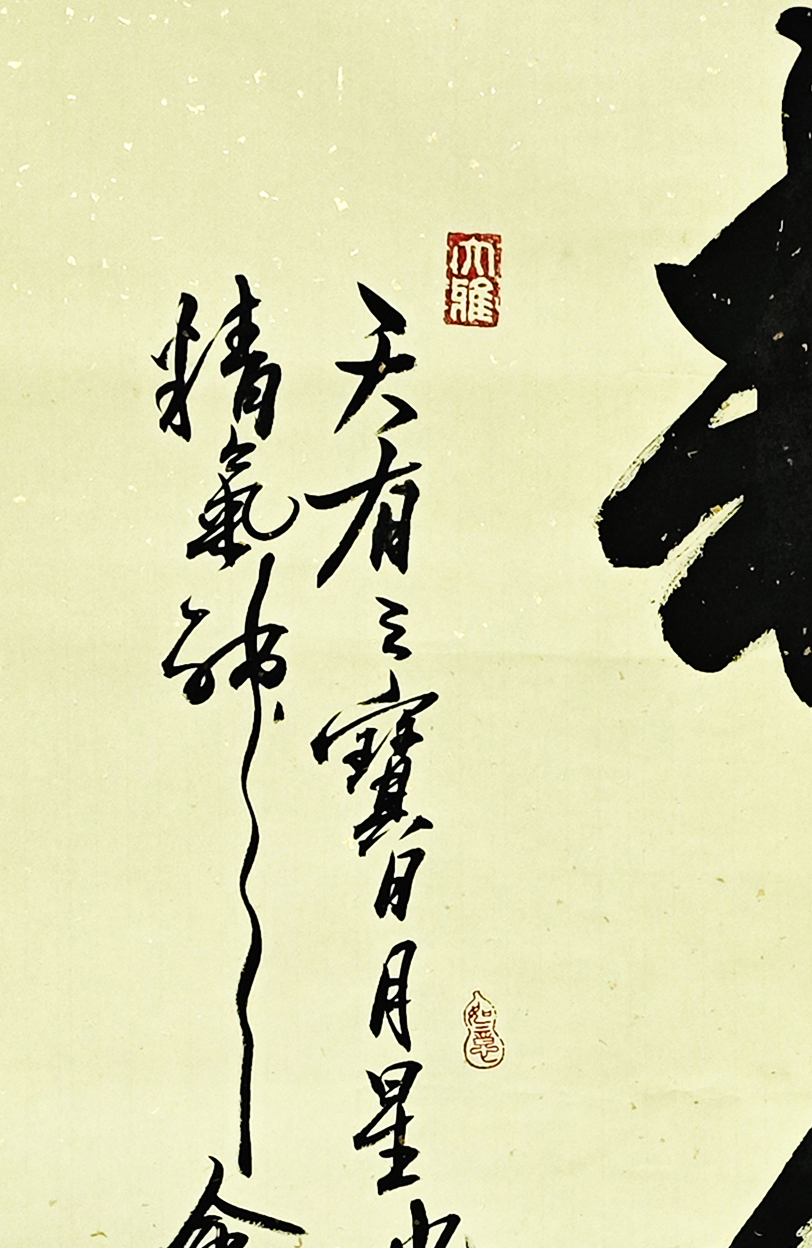 大雅
天有三寶日月星
如意
精氣神